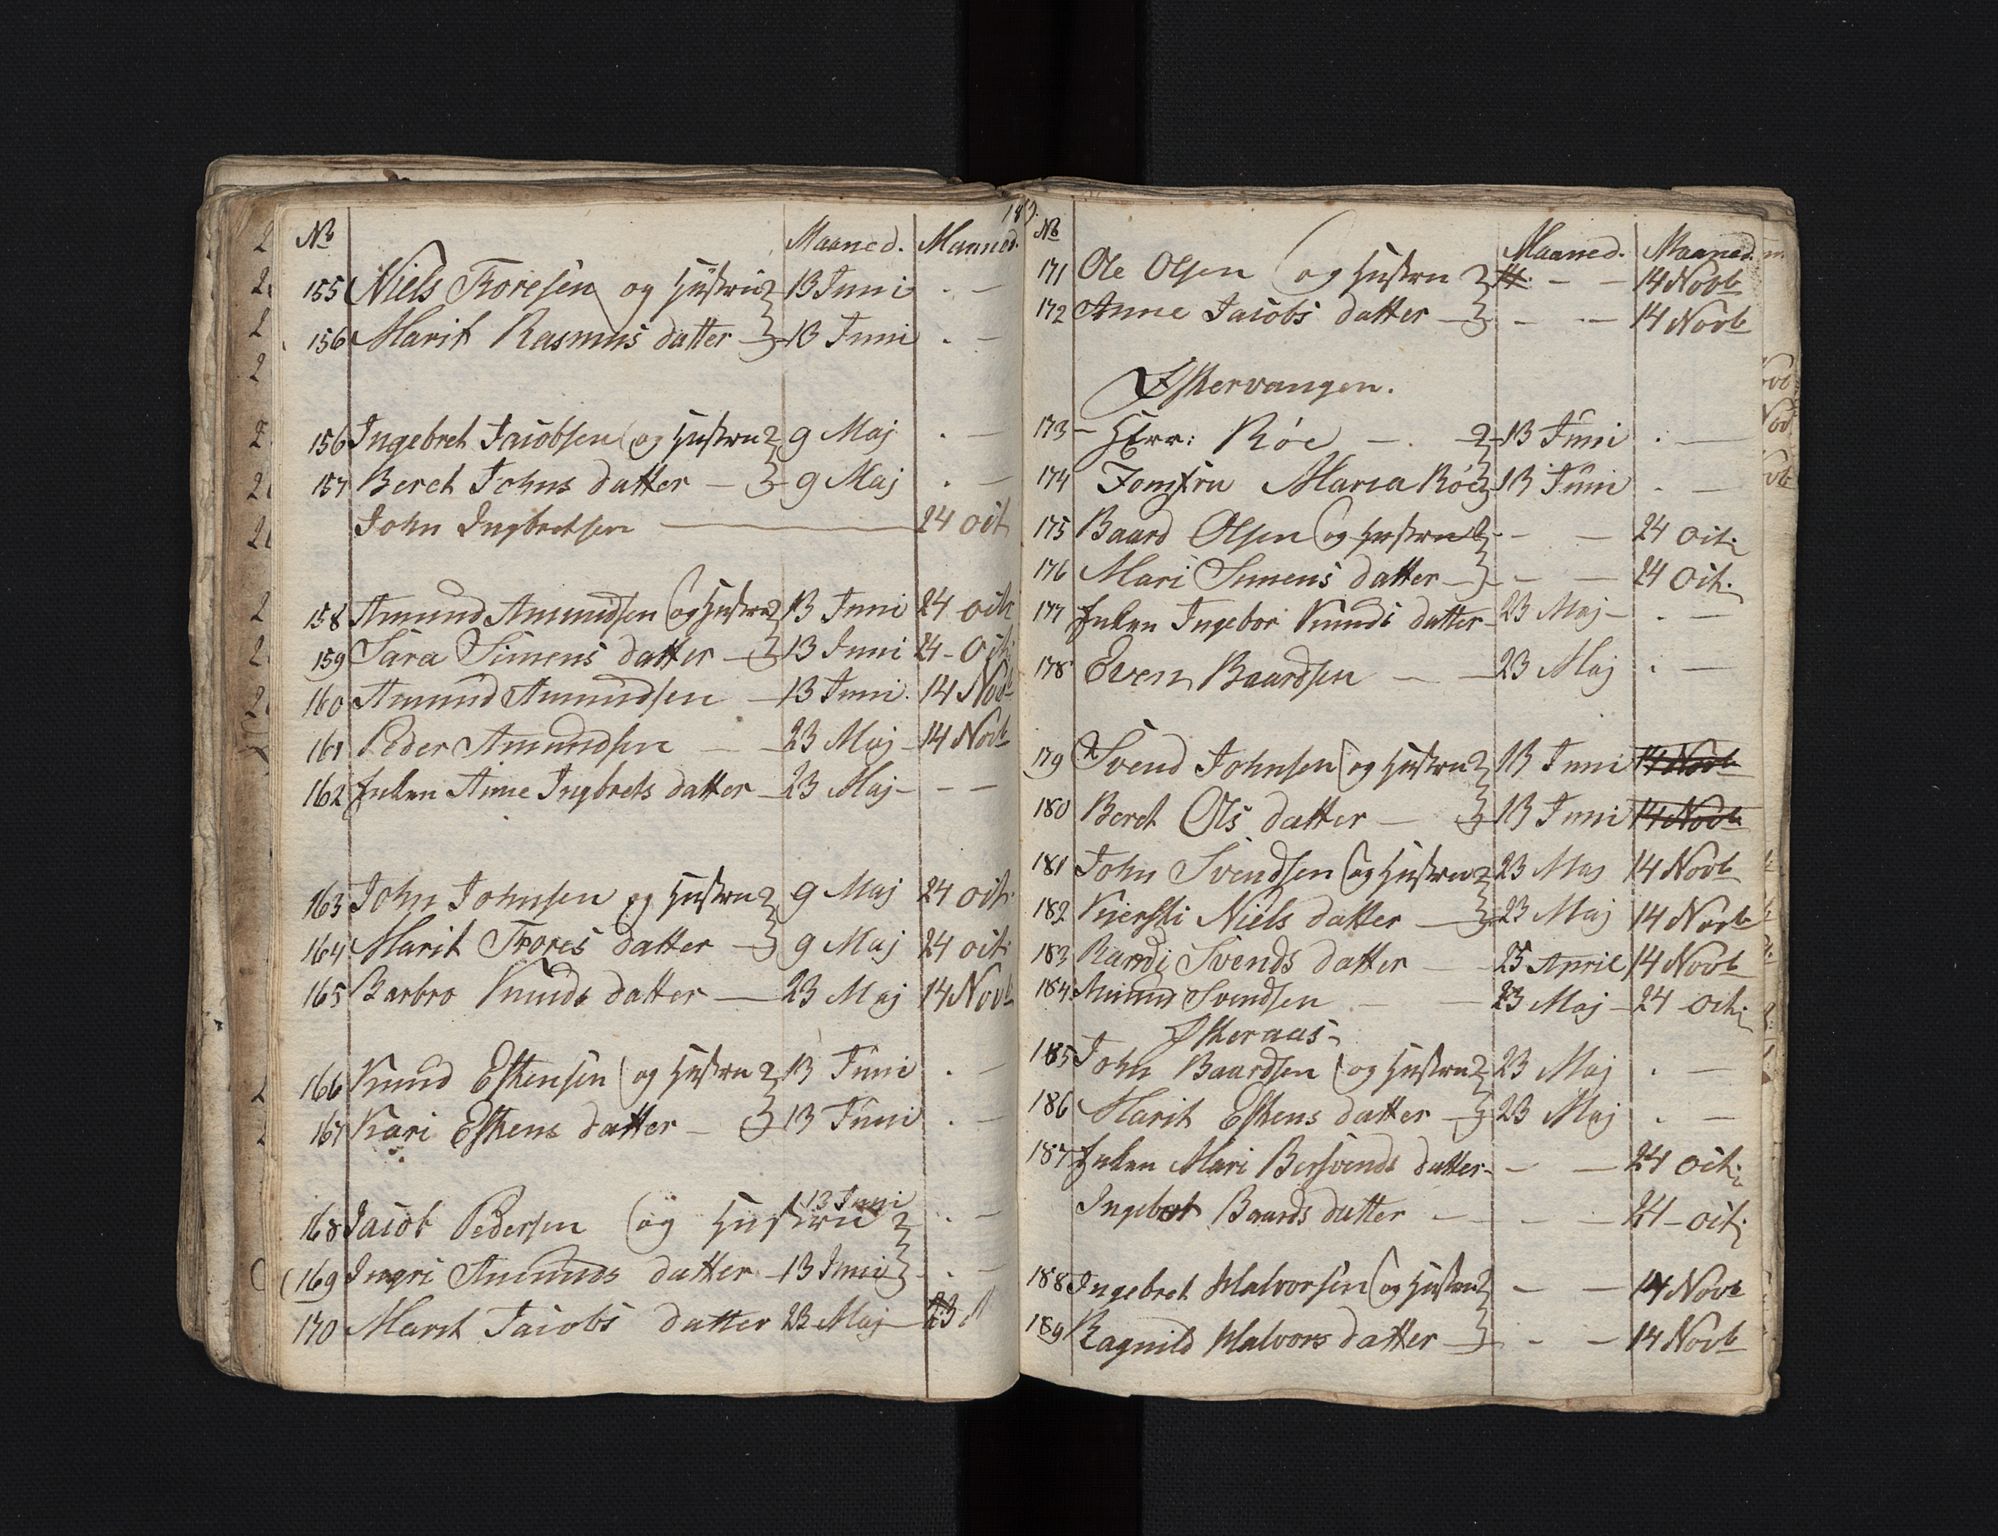 No Maaned. Maaned.
155 Niels Toresen og Hustru 13 Juni . —
156 Marit Rasmus datter — 13 Juni . —
156 Ingebret Jacobsen (og Hustru 9 Maj . —
157 Beret Johns datter — 9 Maj . —
John Ingbretsen — 24 oct.
158 Amund Amundsen (og Hustru 13 Juni 24 oct
159 Sara Simens datter — 13 Juni 24 - Oct:
160 Amund Amundsen — 13 Juni. 14 Novb
161 Peder Amundsen — — 23 Maj — 14 Novb
162 Enken Anne Ingbrets datter — 23 Maj — — —
163 John Johnsen og Hustru 9 Maj 24 oct.
164 Marit Tores datter — 9 Maj 24 oct:
165 Barbro Knuds datter — 23 Maj 14 Novb
166 Knud Eskensen (og Hustru 13 Juni . —
167 Kari Eskens datter — 13 Juni . —
168 Jacob Pedersen (og Hustru 13 Juni . —
169 Ingri Amunds datter — 13 Juni . —
170 Marit Jacobs datter 23 Maj — 23 M
No Maaned. Maaned.
171 Ole Olsen (og Hustru 14 — — 14 Novb
172 Anne Jacobs datter — — — 14 Novb
Eskervangen.
173 — Herr: Röe — . 13 Juni . —
174 Jomfru Maria Röe 13 Juni . —
175 Baard Olsen (og Hustru — — 24 oct:
176 Mari Simens datter — — — 24 Oct.
177 Enken Ingebor Knuds datter — 23 Maj — . —
178 Even Baardsen — — 23 Maj . —
179 x Svend Johnsen (og Hustru 13 Juni 14 Novb
180 Beret Ols datter — 13 Juni 14 Novb
181 John Svendsen (og Hustru 23 Maj 14 Novb
182 Kiersti Niels datter — 23 Maj 14 Novb
183 Randi Svends datter — 25 April 14 Novb
184 Amund Svendsen — — 23 Maj — 24 oct:
Eskeraas.
185 John Baardsen (og Hustru 23 Maj . —
186 Marit Eskens datter — 23 Maj . —
187 Enken Mari Bersvends datter — — — 24 oct:
Ingebor Baards datter — — — 24 - oct:
188 Ingebret Halvorsen (og Hustru — — 14 Novb
189 Ragnild Halvors datter — — — 14 Novb